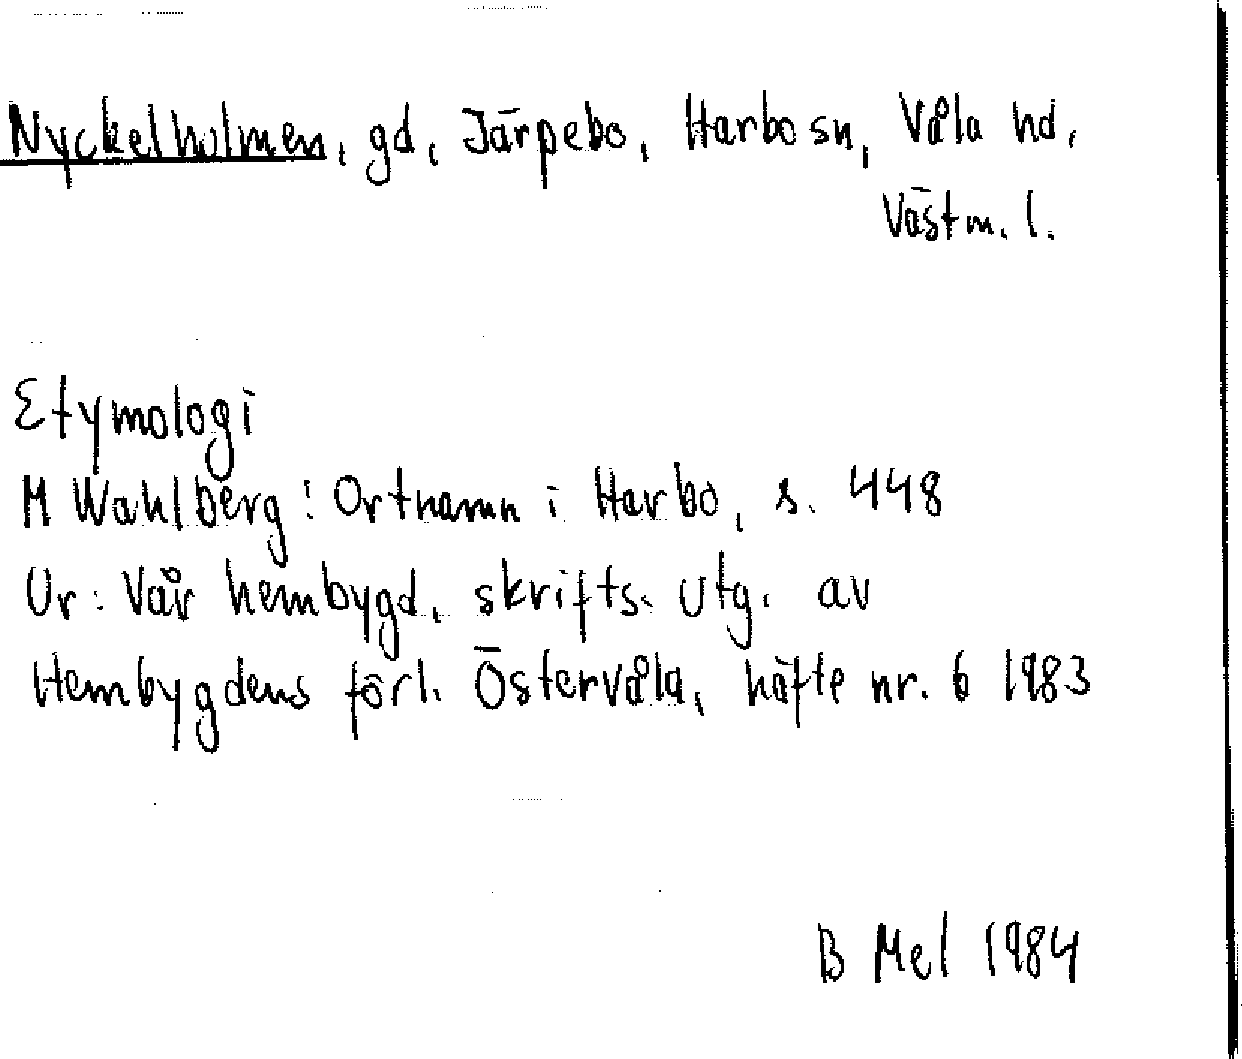 Nyckelholmen, gd, Järpebo, Harbo sn, Våla hd,
Västm. l.
Etymologi
M Wahlberg: Ortnamn i Harbo, s. 448
Ur: Vår hembygd, skrifts. utg. av
Hembygdens förl. Östervåla, häfte nr. 6 1983
B Mel 1984